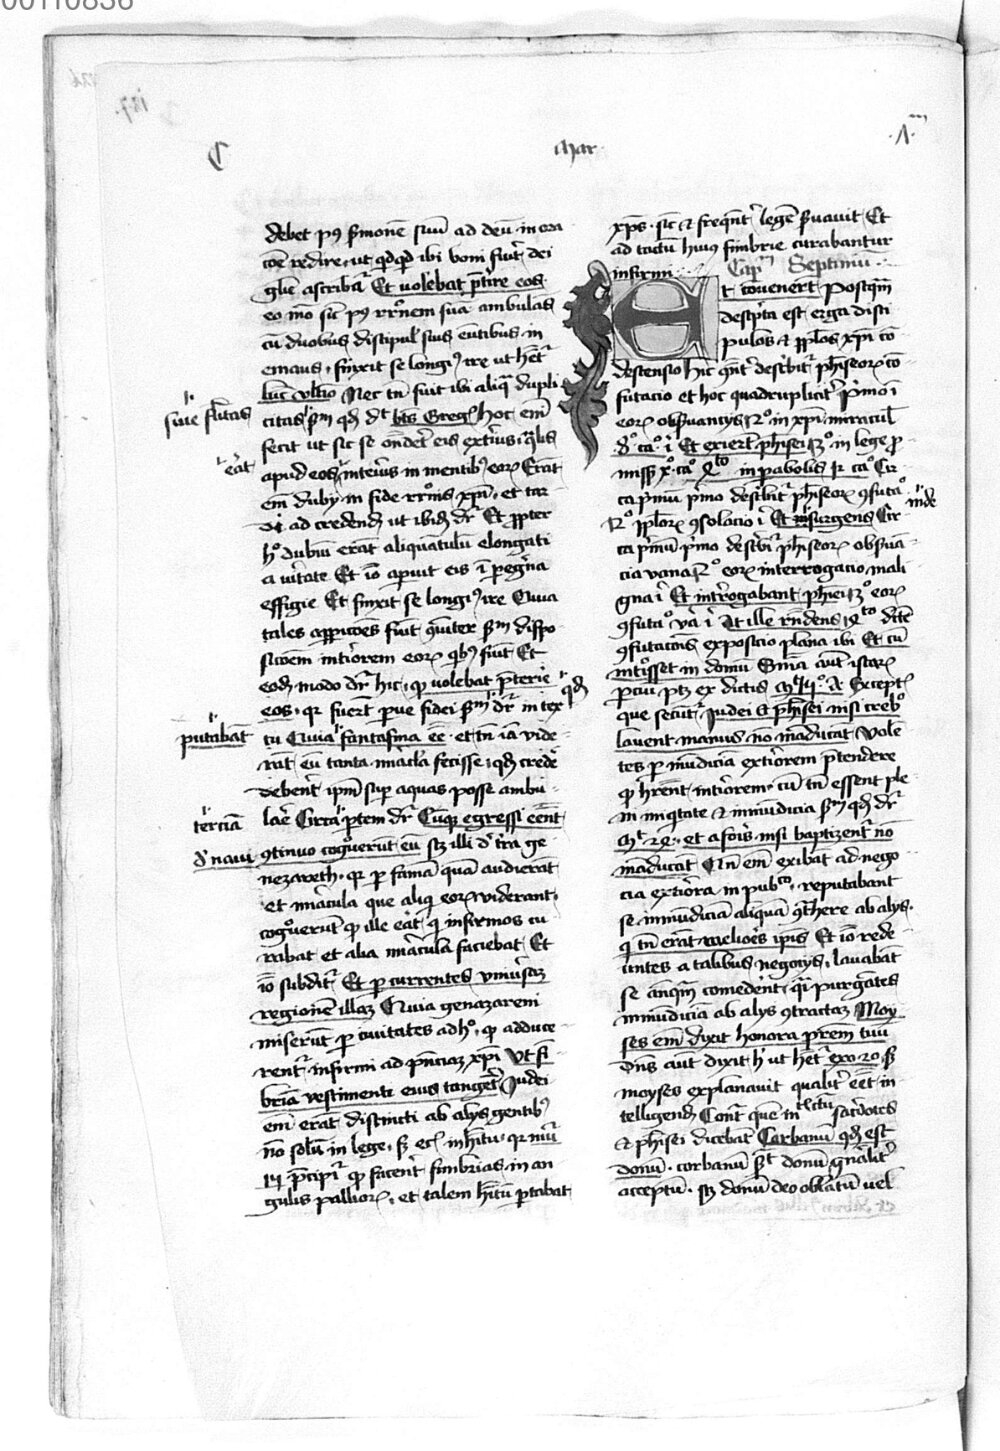 00110836
127.
C Mar 1m
debet pꝰ ẜmonē suū ad deū in ora
coē redire, ut qdqd ibi boni fuit dei
glīe ascribat Et volebat p̄tire eos
eo mo sic pꝰ rrōnem suā ambulās
cū duobus discipul suis eūtibus in
emaus, finxit se longiꝰ ire ut het
luc ultio Nec tn fuit ibi aliqa dupli
citas ẜm qd dt bts Greg hoc em
fecit ut sic se ondet eis exterius qlis
apud eos interius in mentibꝰ eoꝝ Erāt
em duby in fide rrōnis xpi, et tar
di ad credend ut ibid dr Et ppter
hº dubiū erāt aliquātulū elongati
a uitate Et iō aparuit eis ī pegna
effigie Et finxit se longiꝰ ire Quia
tales appicōes fiūt qniter ẜm dispo
sicoēm intiorem eoꝝ qbꝰ fiūt Et
eodem modo dr hic, qp volebat p̄terire
eos, qr fuert parue fidei ẜm dr in tex
tu Quia fantasma eē et tn iā vide
rāt eū tanta miracla fecisse, qd crede
debent ipm sup aquas posse ambu
lare Circa ptem dr Cūqp egressi eent
9tinuo coguerut eū sꝫ illi d tra ge
nezareth, qr p famā quā audierāt
et miracula que aliq eoꝝ viderant,
cogouerut qp ille eat qi infirmos cu
rabat et alia miracula faciebat Et
iō subdit Et pcurrentes vniusaꝫ
regionē illaꝫ Quia genazareni
miserūt p ciuitates adhº, qp adduce
rent infirmi ad pnciaꝫ xpi Vt fi
bria vestimenti eius tanget Judei
em erāt distincti ab alys gentibꝰ
nō solū in lege, ẜ ecl in hitu, qr nu
15 p̄cipit qp facent fimbrias in an
gulis pallioꝝ, et talem hitū ptabat
sue fltitas
eāt
putabāt
terciā
d naui
qd
xps sic et freqnt legē ẜuauit Et
ad tactū huiꝰ fimbrie curabantur
infirmi Capm Septimū
Et couenert Postqm
descpta est erga disci
pulos et pplos xpi cō
descensio hic qnt describit phiseoꝝ cō
futacio et hoc quadruplicit Primo i
eoꝝ obẜuancys, 2º in xpi miracul
8º ca i Et exiert phisei, 3º in lege p
miss xº ca 4to in pabolis 12 ca Cir
ca pimū pimo describit phiseoꝝ 9futaº
2º pploꝝ 9solacio i Et insurgens Cir
ca pimū pimo describit phiseoꝝ obẜua
cia vana, 2º eoꝝ interrogacio mali
gna i Et introgabant phisei, 3º eoꝝ
9futaº va i At ille rndens, 4to dicte
9futacōis exposicio plana ibi Et cū
introisset in domū Snia aut istaꝝ
parciū ptꝫ ex dictis Mt 15º A Exceptꝫ
que secunt Judei et phisei nisi crebº
lauent manus nō māducāt Volē
tes p mundicia extiorem p̄tendere
qp hrent intiorem, cū tn essent ple
ni iniqtate et inmūdicia ẜm qd dr
Mt 23, et a foro nisi baptizent nō
māducāt Qn em exibāt ad nego
cia extiora in pubco, reputabant
se inmūdiciā aliquā 9there ab alys,
qi tn erāt meliores ipis Et iō rede
untes a talibus negocys, lauabāt
se anqm comedent, qi purgātes
inmūdiciā ab alys 9tractaꝫ Moy
ses em dixit honora prem tuū
Dns aut dixit h ut het exo 20 ẜ
moyses explanauit qualit eet in
telligend Cont quē intellectū sacdotes
et phisei dicebāt Corbanū qd est
donū. corbanū ẜt donū gnalit
acceptū. sꝫ donū deo oblatū uel
inde